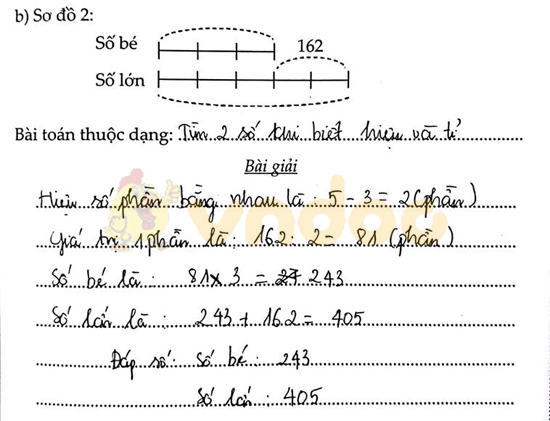 b) Sơ đồ 2:
Số bé 162
Số lớn
Bài toán thuộc dạng: Tìm 2 số khi biết hiệu và tỉ
Bài giải
Hiệu số phần bằng nhau là: 5 - 3 = 2 (phần)
Giá trị 1 phần là: 162 : 2 = 81 (phần)
Số bé là: 81 x 3 = 243
Số lớn là: 243 + 162 = 405
Đáp số: Số bé: 243
Số lớn: 405
vndoc